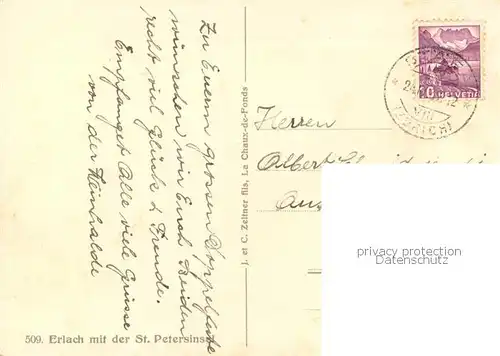 Zu Euerm grossen Doppelfeste
wünschen wir Euch Beiden
recht viel Glück & Freude.
Empfanget Alle viele Grüsse
von der
J. et C. Zeltner fils, La Chaux-de-Fonds
509. Erlach mit der St. Petersinsel
HELVETIA
(ZÜRICH)
Herren
Albert
privacy protection
watermark